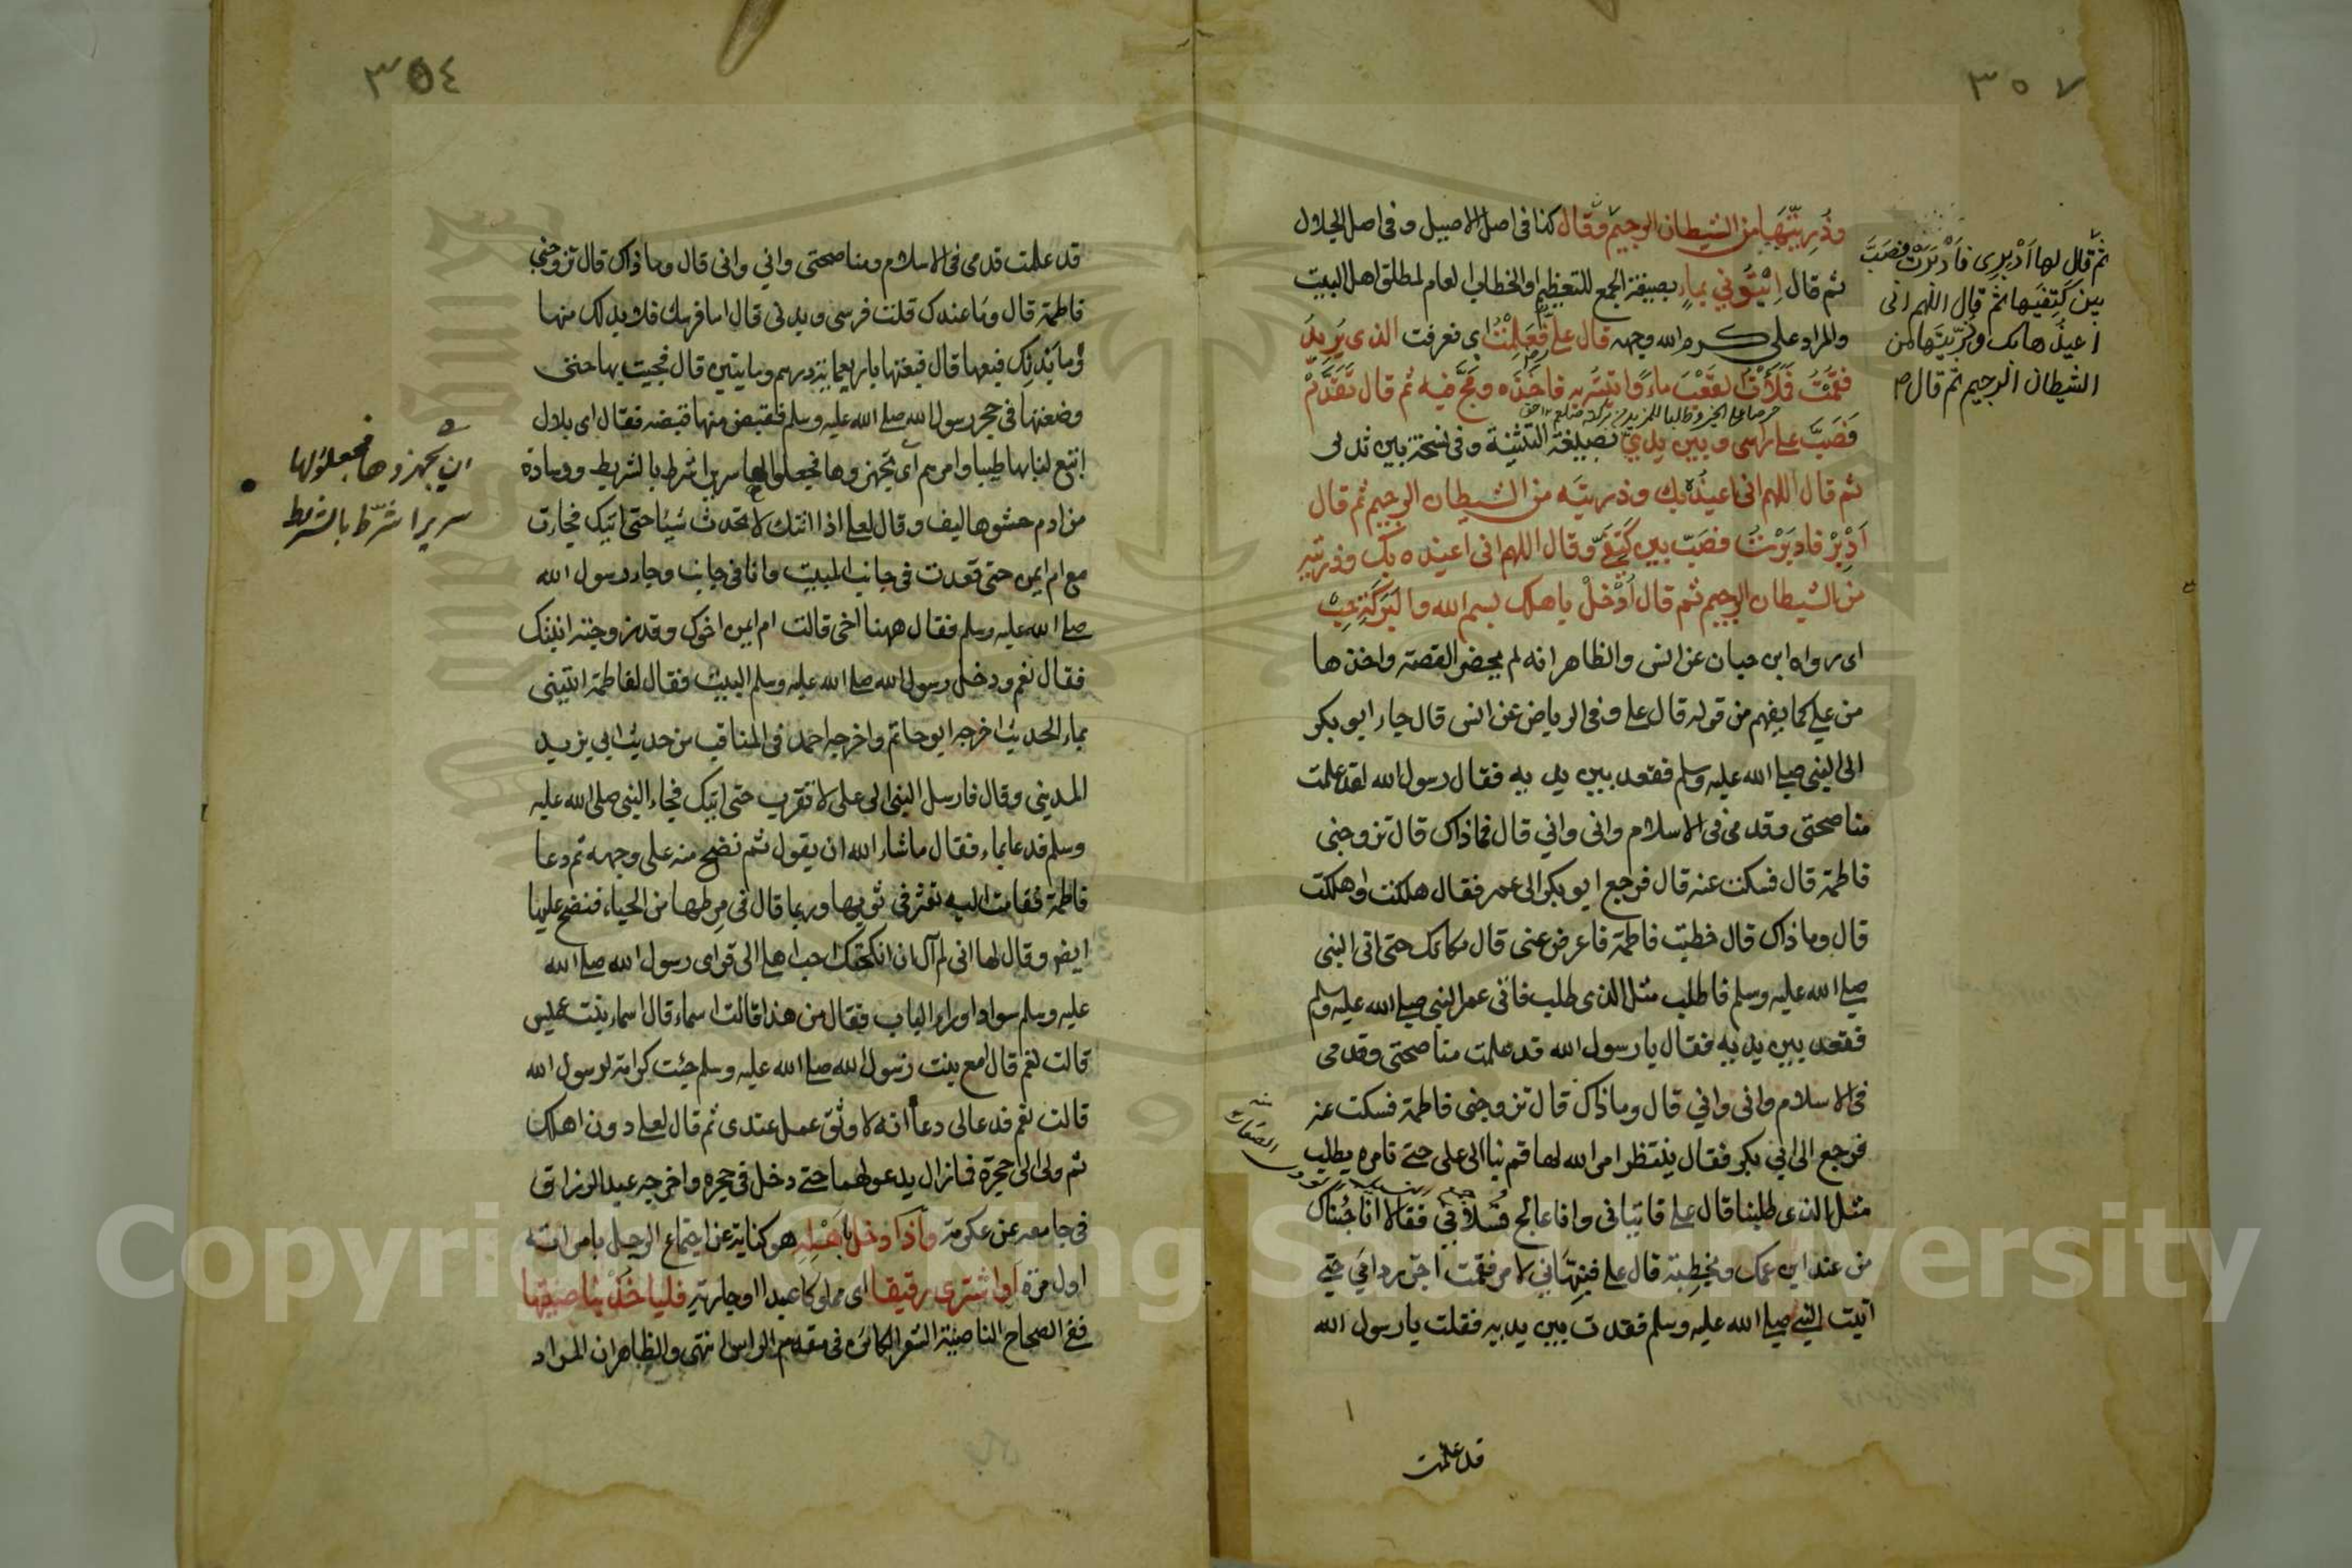 ٣٥٧
وذريتها من الشيطان الرجيم وقال كذا في اصل الاصيل وفي اصل الجلال
ثم قال ائتوني بماء بصيغة الجمع للتعظيم او الخطاب لعام لمطلق اهل البيت
والمراد علي كرم الله وجهه قال علي فعلمت اي فعرفت الذي يريد
فقمت فملأت القعب ماء واتيته به فاخذه ومج فيه ثم قال تقدم
فصب على راسي وبين يدي بصيغة التثنية وفي نسخة بين ثديي
ثم قال اللهم اني اعيذه بك وذريته من الشيطان الرجيم ثم قال
ادبر فادبرت فصب بين كتفي وقال اللهم اني اعيذه بك وذريته
من الشيطان الرجيم ثم قال ادخل باهلك بسم الله والبركة حب
اي رواه ابن حبان عن انس والظاهر انه لم يحضر القصة واخذها
من علي كما يفهم من قوله قال علي وفي الرياض عن انس قال جاء ابو بكر
الى النبي صلى الله عليه وسلم فقعد بين يديه فقال رسول الله لقد علمت
مناصحتي وقدمي في الاسلام واني واني قال فماذاك قال تزوجني
فاطمة قال فسكت عنه قال فرجع ابو بكر الى عمر فقال هلكت واهلكت
قال وما ذاك قال خطبت فاطمة فاعرض عني قال مكانك حتى اتى النبي
صلى الله عليه وسلم فاطلب مثل الذي طلبت فاتى عمر النبي صلى الله عليه وسلم
فقعد بين يديه فقال يا رسول الله قد علمت مناصحتي وقدمي
في الاسلام واني واني قال وما ذاك قال تزوجني فاطمة فسكت عنه
فرجع الى ابي بكر فقال ينتظر امر الله لها قم بنا الى علي حتى نامره يطلب
مثل الذي طلبنا قال علي فاتياني وانا عالج فسلا في فقالا انا جئناك
من عند ابن عمك ونخطبة قال علي فنبهاني لامر فقمت اجر ردائي حتى
اتيت النبي صلى الله عليه وسلم فقعدت بين يديه فقلت يا رسول الله
قد علمت
ثم قال لها ادبري فادبرت فصب
بين كتفيها ثم قال اللهم اني
اعيذها بك وذريتها من
الشيطان الرجيم ثم قال
٣٥٤
قد علمت قدمي في الاسلام ومناصحتي واني واني قال وما ذاك قال تزوجني
فاطمة قال وما عندك قلت فرسي وبدني قال اما فرسك فلا بد لك منها
وما بدنك فبعها قال فبعتها باربعمائة درهم وثمانين قال فجيت بها حتى
وضعتها في حجر رسول الله صلى الله عليه وسلم فقبض منها قبضة فقال اي بلال
ابتع لنا بها طيبا وامرهم ان يجهزوها فجعلوا لها سريرا شرط بالشريط ووسادة
من ادم حشوها ليف وقال لعلي اذا اتتك لا تحدث شيئا حتى اتيك فجاءت
مع ام ايمن حتى قعدت في جانب البيت وانا في جانب وجاء رسول الله
صلى الله عليه وسلم فقال ههنا اخي قالت ام ايمن اخوك وقد زوجته ابنتك
فقال نعم ودخل رسول الله صلى الله عليه وسلم البيت فقال لفاطمة ائتيني
بماء الحديث اخرجه ابو حاتم واخرجه احمد في المناقب من حديث ابي يزيد
المديني وقال فارسل النبي الى علي لا تقرب حتى اتيك فجاء النبي صلى الله عليه
وسلم فدعا بماء فقال ما شاء الله ان يقول ثم نضح منه على وجهه ثم دعا
فاطمة فقامت اليه تعثر في ثوبها وربما قال في مرطها من الحياء فنضح عليها
ايضا وقال لها اني لم آل ان انكحتك احب اهلي الي فراى رسول الله صلى الله
عليه وسلم سوادا وراء الباب فقال من هذا قالت اسماء قال اسماء بنت عميس
قالت نعم قال امع بنت رسول الله صلى الله عليه وسلم جئت كرامة لرسول الله
قالت نعم فدعا لي دعاء انه لاوثق عمل عندي ثم قال لعلي دونك اهلك
ثم ولى الى حجرة فما زال يدعو لهما حتى دخل في حجره واخرجه عبد الرزاق
في جامعه عن عكرمة واذا دخل باهله هو كناية عن اجتماع الرجل بامراته
اول مرة او اشترى رقيقا اي مملوكا عبدا او جارية فلياخذ بناصيتها
ففي الصحاح الناصية الشعر الكائن في مقدم الراس انتهى والظاهر ان المراد
ان يجهزوها فجعلوا لها
سريرا شرط بالشريط
Copyright © King Saud University